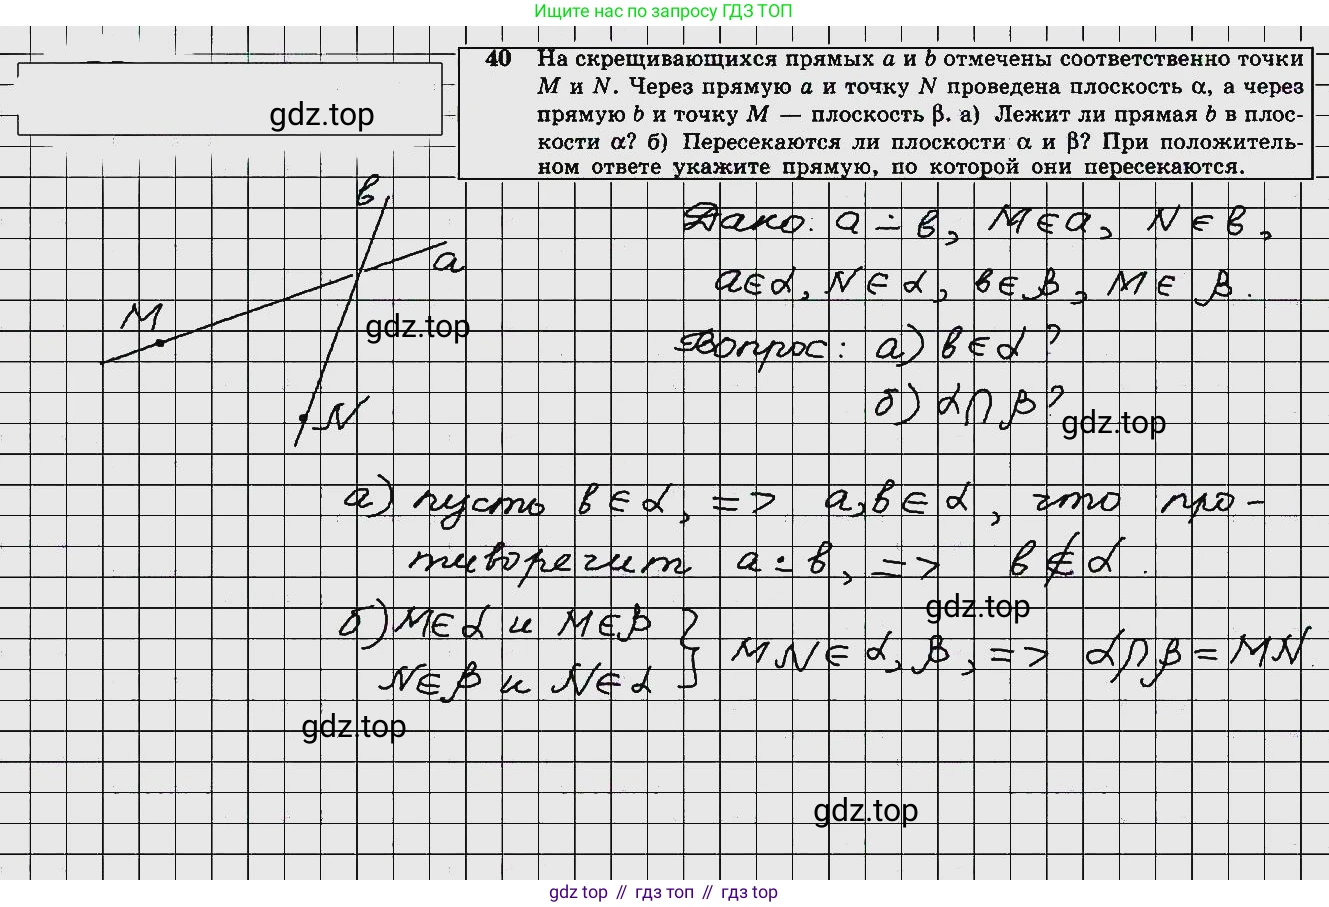 Ищите нас по запросу ГДЗ ТОП
40 На скрещивающихся прямых a и b отмечены соответственно точки
M и N. Через прямую a и точку N проведена плоскость α, а через
прямую b и точку M — плоскость β. а) Лежит ли прямая b в плос-
кости α? б) Пересекаются ли плоскости α и β? При положитель-
ном ответе укажите прямую, по которой они пересекаются.
gdz.top
в
a
M
N
gdz.top
Дано: a ∸ в, M ∈ a, N ∈ в,
a ∈ α, N ∈ α, в ∈ β, M ∈ β.
Вопрос: а) в ∈ α?
б) α ∩ β?
gdz.top
а) пусть в ∈ α, => a, в ∈ α, что про-
тиворечит a ∸ в, => в ∉ α.
gdz.top
б) M ∈ α и M ∈ β } MN ∈ α, β, => α ∩ β = MN.
N ∈ β и N ∈ α
gdz.top
gdz.top
gdz top // гдз топ // gdz top